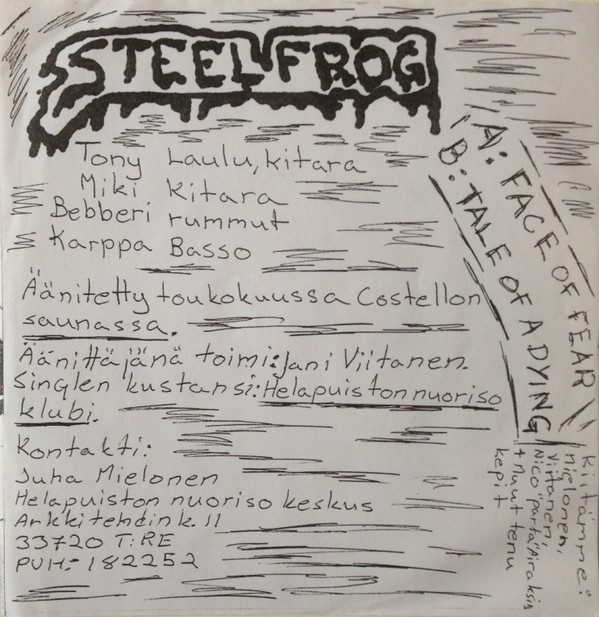 STEEL FROG
Tony Laulu, kitara
Miki kitara
Bebberi rummut
Karppa Basso
Äänitetty toukokuussa Costellon
saunassa.
Äänittäjänä toimi: Jani Viitanen.
Singlen kustansi: Helapuiston nuoriso
klubi.
Kontakti:
Juha Mielonen
Helapuiston nuoriso keskus
Arkkitehdin k. 11
33720 T:RE
PUH:- 182252
A: FACE OF FEAR
B: TALE OF A DYING
Kiitämme:
Mielonen,
Viitanen,
Nico "parta"
+ muut tenu
kepit